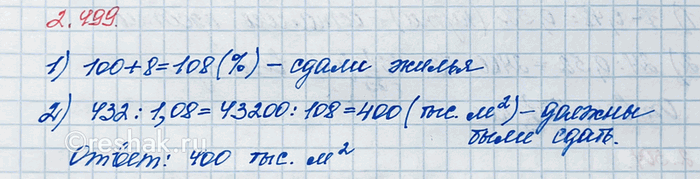 2.499.
1) 100+8=108(%) – сдали жилья
2) 432 : 1,08 = 43200 : 108 = 400 (тыс. м²) – должны
были сдать.
Ответ: 400 тыс. м²
©reshak.ru